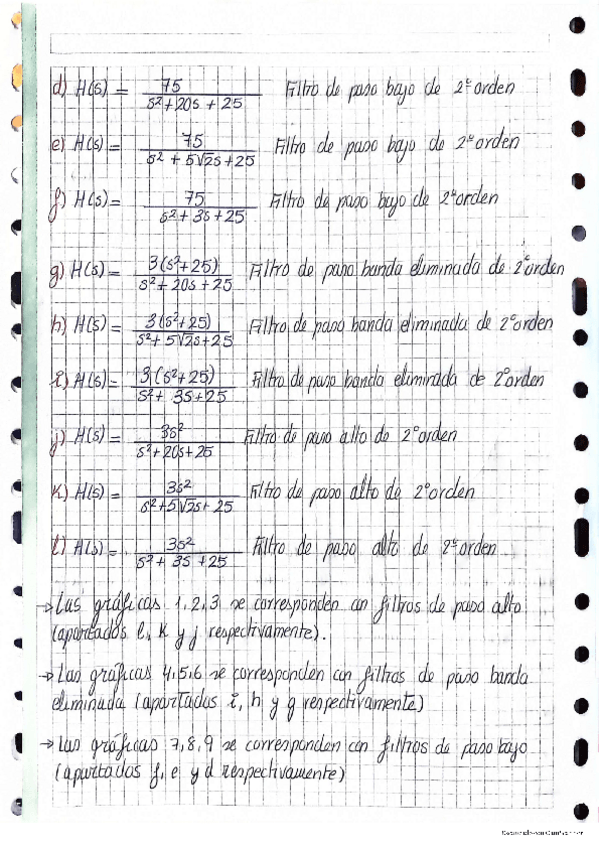 d) H(s) = 75 / (s²+20s+25) Filtro de paso bajo de 2º orden
e) H(s) = 75 / (s² + 5√2s + 25) Filtro de paso bajo de 2º orden
f) H(s) = 75 / (s² + 3s + 25) Filtro de paso bajo de 2º orden
g) H(s) = 3(s²+25) / (s² + 20s + 25) Filtro de paso banda eliminada de 2º orden
h) H(s) = 3(s²+25) / (s² + 5√2s + 25) Filtro de paso banda eliminada de 2º orden
i) H(s) = 3(s²+25) / (s² + 3s + 25) Filtro de paso banda eliminada de 2º orden
j) H(s) = 3s² / (s² + 20s + 25) Filtro de paso alto de 2º orden
k) H(s) = 3s² / (s² + 5√2s + 25) Filtro de paso alto de 2º orden
l) H(s) = 3s² / (s² + 3s + 25) Filtro de paso alto de 2º orden
→ Las gráficas 1, 2, 3 se corresponden con filtros de paso alto
(apartados l, k y j respectivamente).
→ Las gráficas 4, 5, 6 se corresponden con filtros de paso banda
eliminada (apartados i, h y g respectivamente)
→ Las gráficas 7, 8, 9 se corresponden con filtros de paso bajo
(apartados f, e y d respectivamente)
Escaneado con CamScanner